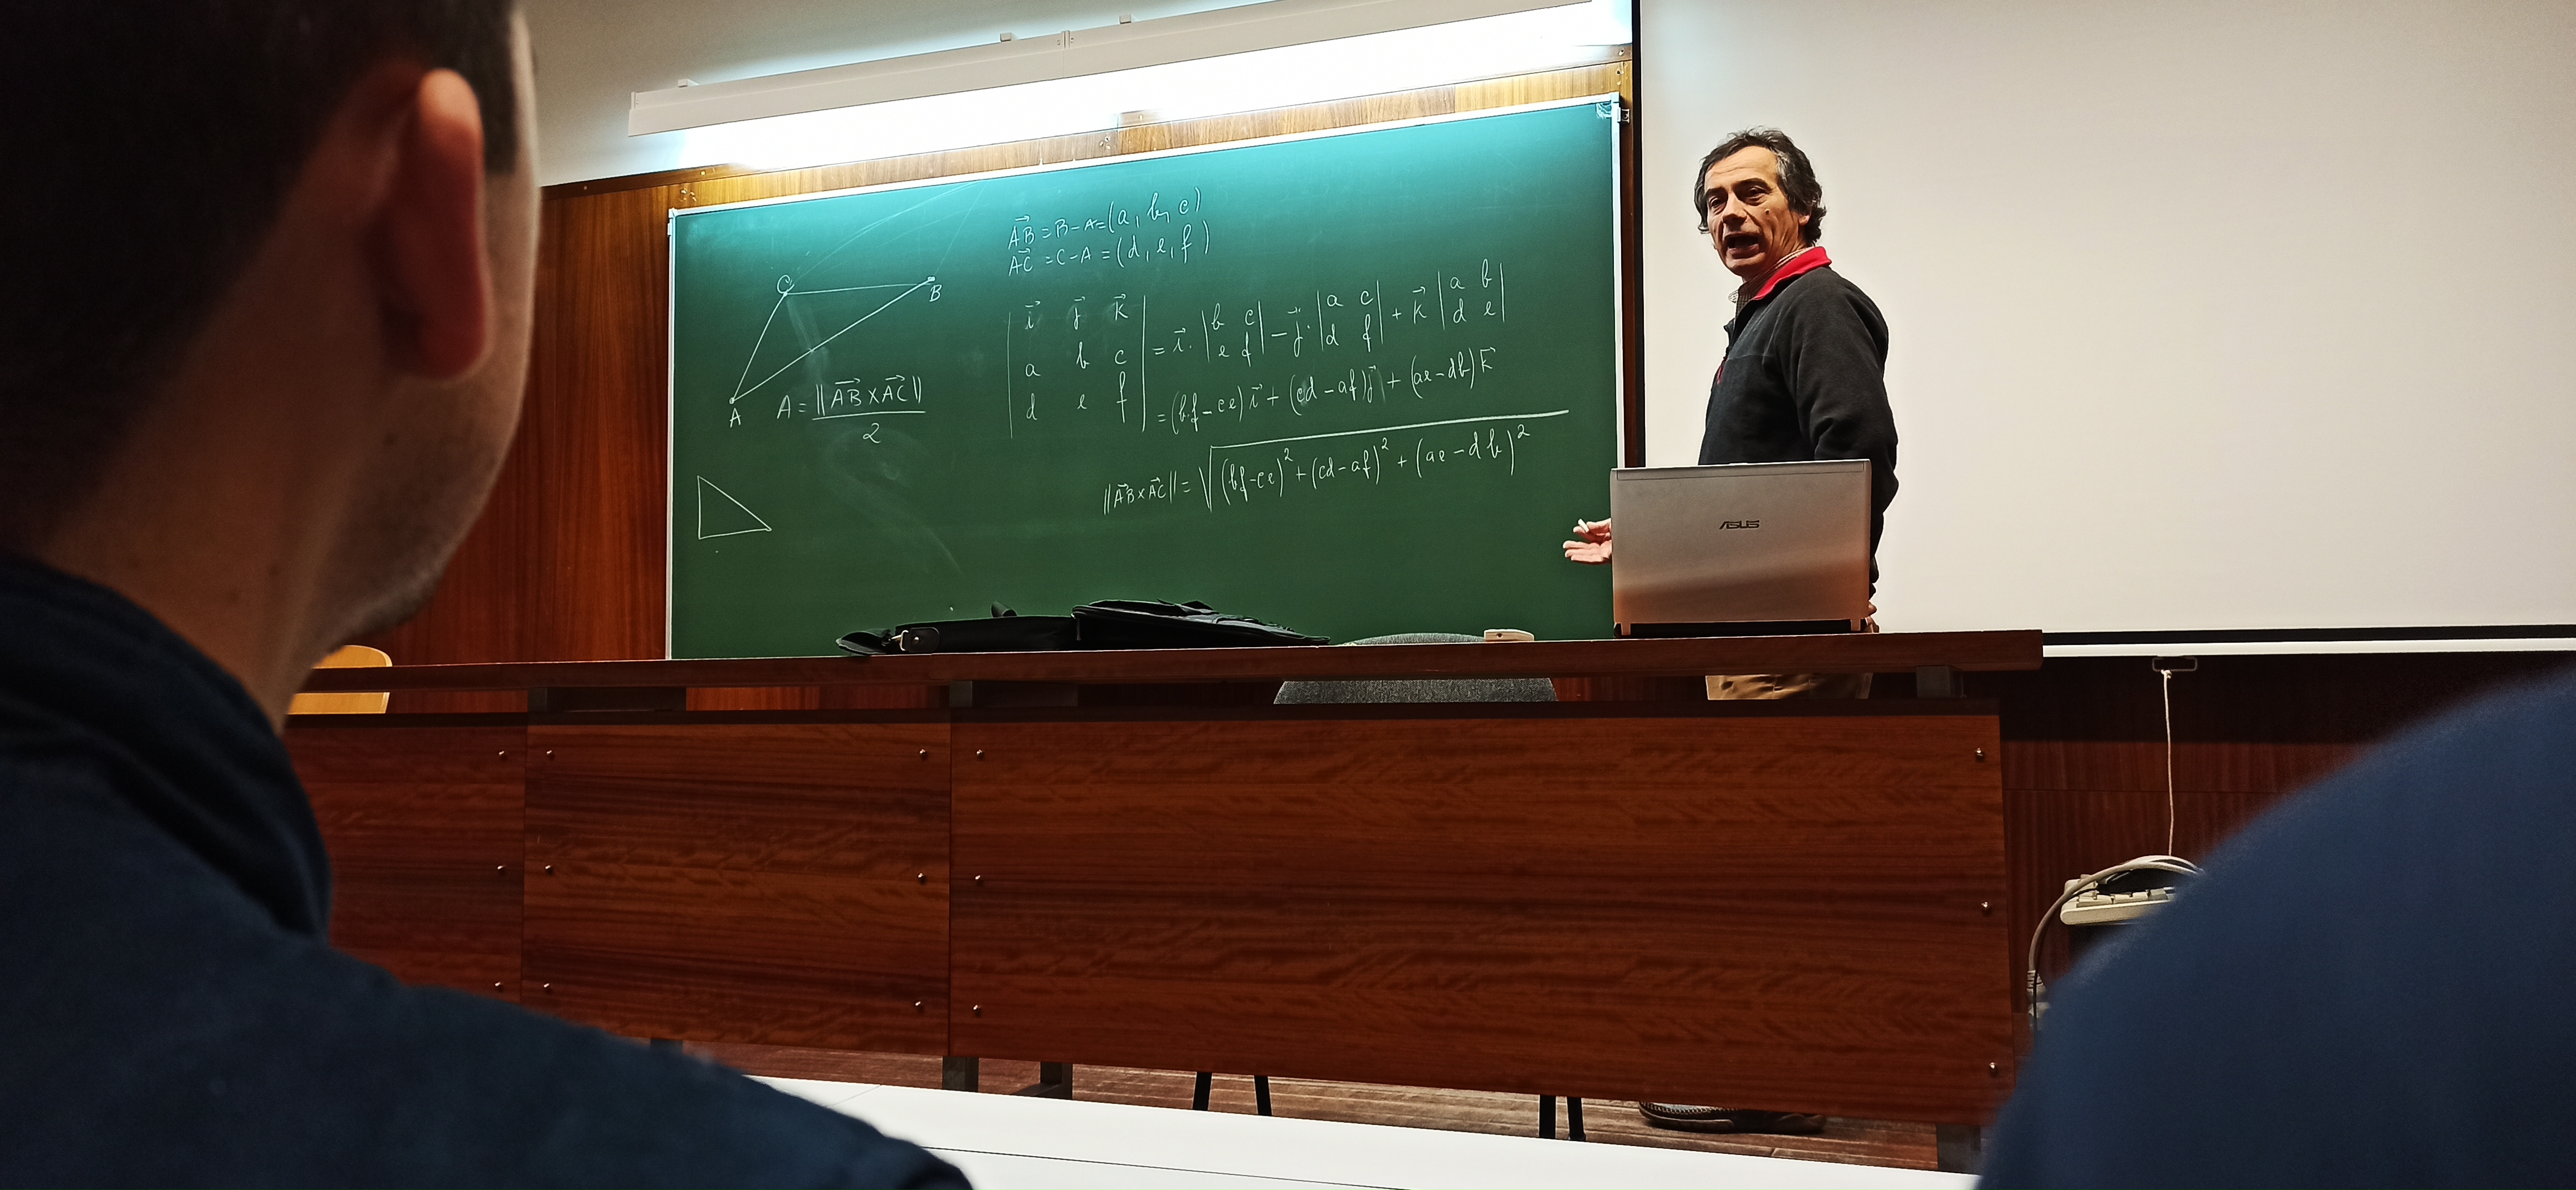 AB⃗ = B-A = (a, b, c)
AC⃗ = C-A = (d, e, f)
C
B
A
A = ||AB⃗ × AC⃗|| / 2
| i⃗ j⃗ k⃗ |
| a b c |
| d e f |
= i⃗ · | b c ; e f | - j⃗ · | a c ; d f | + k⃗ | a b ; d e |
= (bf - ce) i⃗ + (cd - af) j⃗ + (ae - db) k⃗
||AB⃗ × AC⃗|| = √((bf-ce)² + (cd-af)² + (ae-db)²)
ASUS